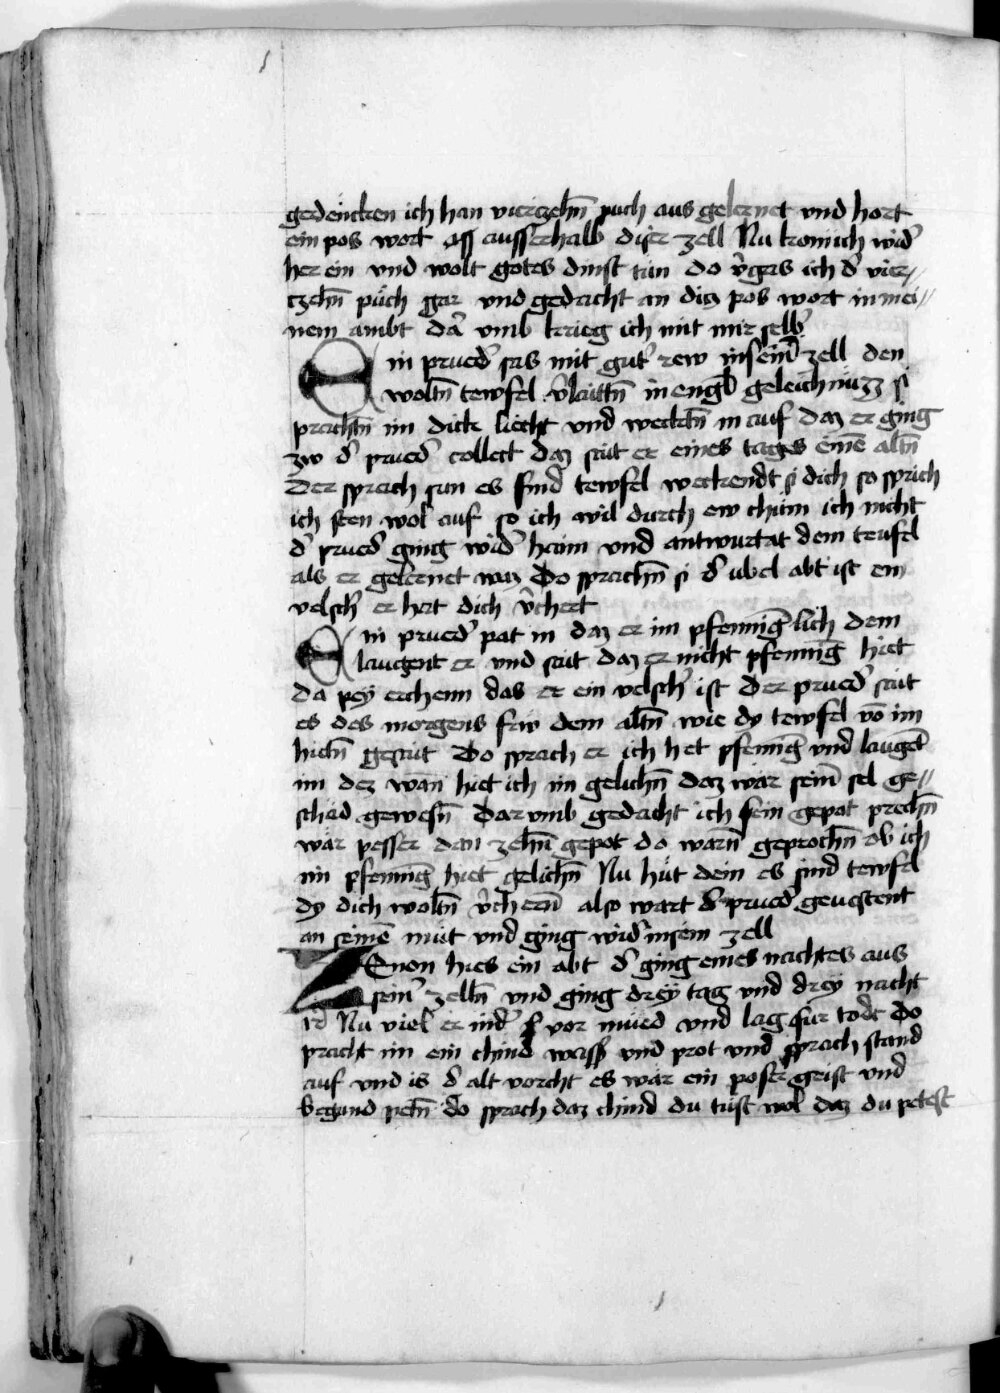 gedencken ich han vierczehn̄ puch aus gelernet vnd hort
ein pos wort ausserhalb diser zell Nu kom ich wid̾
her ein vnd wolt gotes dinst tun do v̾gas ich d̾ vier//
czehn̄ pùch gar vnd gedacht an daz pos wort in mei//
nem ambt dar̾ vmb krieg ich mit mir selb̾
Ein prued̾ sas mit gut̾ rew in sein̄ zell den
woltn̄ tewfel v̾laittn̄ in engl̄ geleichnüzz si
prachtn̄ im dick liecht vnd wecktn̄ in auf daz er ging
zw d̾ prued̾ collect daz sait er eines tages eine̅ altn̄
Der sprach sun es sind tewfel weckendt si dich so sprich
ich sten wol auf so ich wil durch ew chüm ich nicht
d̾ prued̾ ging wid̾ haim vnd antwurtat dem teufel
als er gelernet waz Do sprachn̄ si d̾ ubel abt ist ein
velsch̾ er hat dich v̾chert
Ein prued̾ pat in daz er im pfennig̅ lich dem
laugent er vnd sait daz er nicht pfennig̅ hiet
da peÿ erchenn das er ein velsch̾ ist Der prued̾ sait
es des morgens frw dem altn̄ wie dy tewfel vo̅ im
hietn̄ gesait Do sprach er ich het pfennig̅ vnd laugēt
im dez wan̄ hiet ich im gelichn̄ daz wär sein̄ sel ge//
schad gewesn̄ Dar vmb gedacht ich sein gepot prechn̄
wär pesser dan zehn̄ gepot do warn̄ geprochn̄ ob ich
im pfennig̅ hiet gelichn̄ Nu hüt dein es sind tewfel
dy dich woltn̄ v̾chern̄ also wart d̾ prued̾ geuestent
an seine̅ müt vnd ging wid̾ in sein zell
Zenon hies ein abt d̾ ging eines nachtes aus
sein̾ zelln̄ vnd ging dreÿ tag vnd dreÿ nacht
irr̾ Nu viel er nid̾ vor müed vnd lag fur todt Do
pracht im ein chind wass̾ vnd prot vnd sprach stand
auf vnd is d̾ alt vorcht es wär ein poser geist vnd
begund petn̄ do sprach daz chind du tüst wol daz du petest